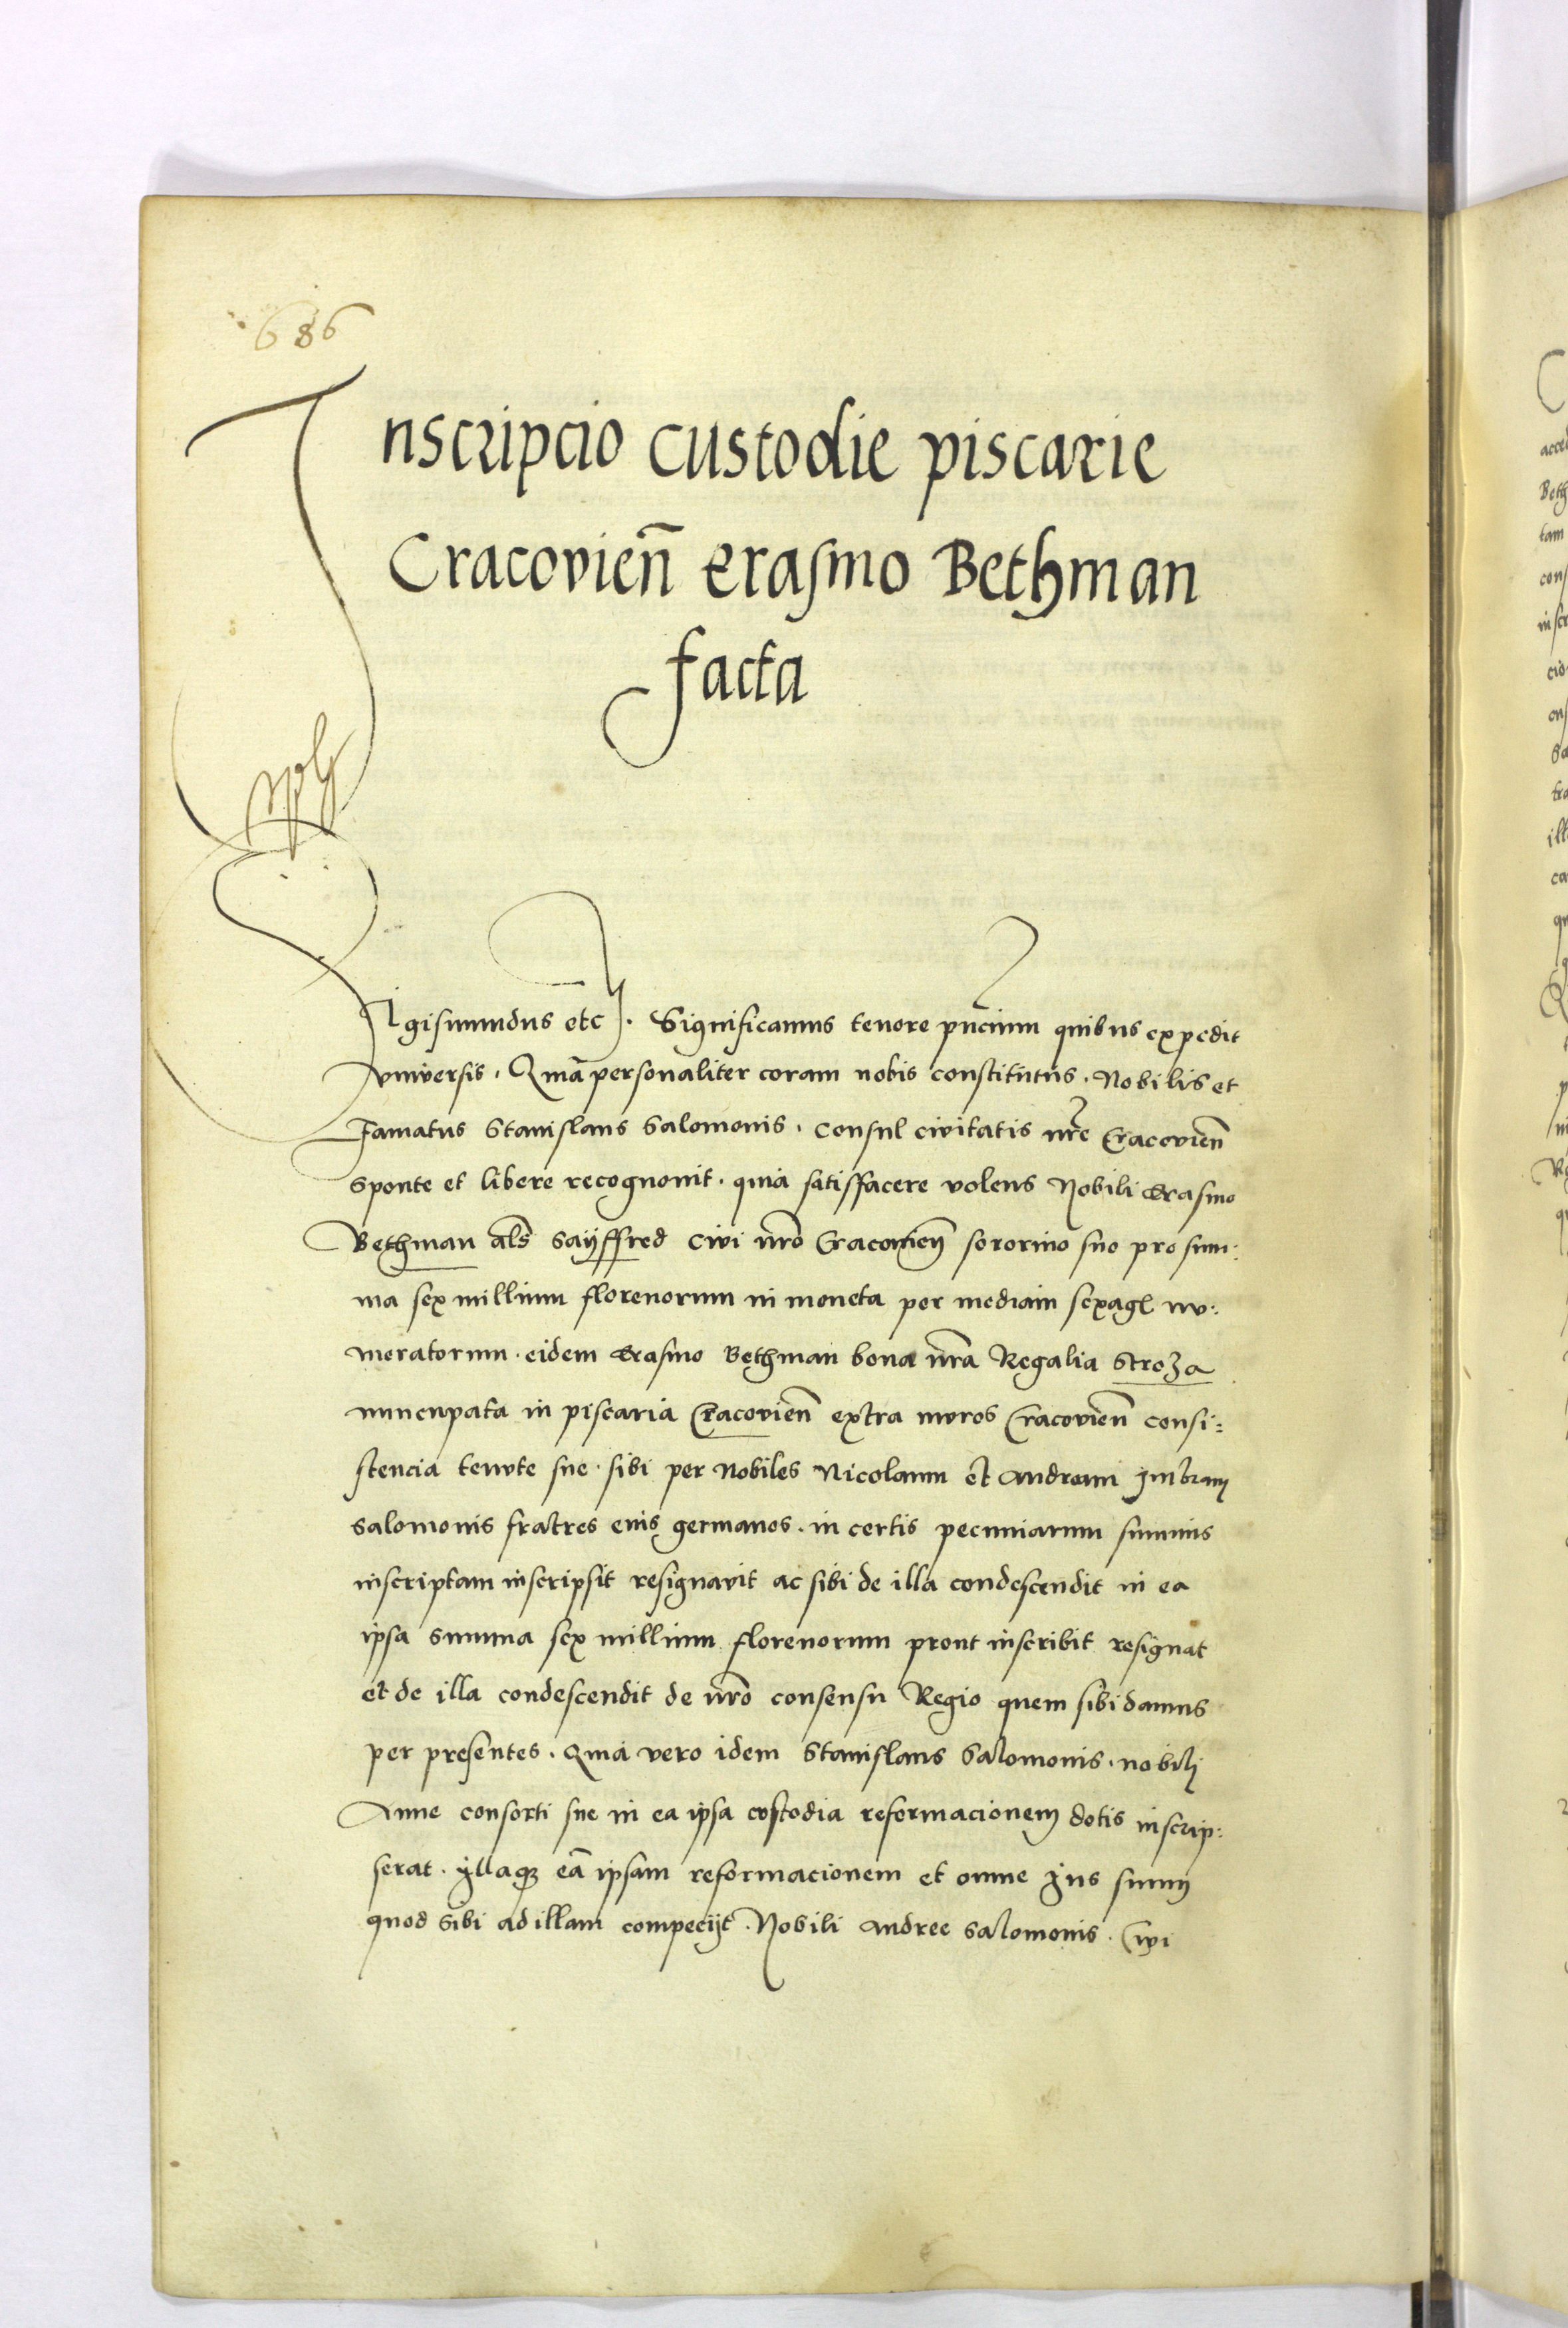 686
Inscripcio custodie piscarie
Cracovien̄ erasmo Bethman
facta
Sigismundus etc. Significamus tenore pn̄cium quibus expedit
vniversis. Qm̄a personaliter coram nobis constitutus. Nobilis et
famatus Stanislaus Salomonis. Consul civitatis nr̄e Cracovien̄
sponte et libere recognovit. quia satisffacere volens Nobili Erasmo
Bethman al̄s Sayffred Civi nr̄o Cracovien̄ sororino suo pro sum:
ma sex millium florenorum in moneta per mediam sexagl nu:
meratorum. eidem Erasmo Bethman bona nr̄a Regalia Stroza
nuncupata in piscaria Cracovien̄ extra muros Cracovien̄ consi:
stencia tenute sue. sibi per Nobiles Nicolaum et Andream Imbram
Salomonis fratres eius germanos. in certis pecuniarum summis
inscriptam inscripsit resignavit ac sibi de illa condescendit in ea
ipsa summa sex millium florenorum prout inscribit resignat
et de illa condescendit de nr̄o consensu Regio quem sibi damus
per presentes. Quia vero idem Stanislaus Salomonis. nobili
Anne consorti sue in ea ipsa custodia reformacionem dotis inscrip:
serat. Illaqȝ eā ipsam reformacionem et omne Ius suum
quod sibi ad illam competijt. Nobili Andree Salomonis. Civi